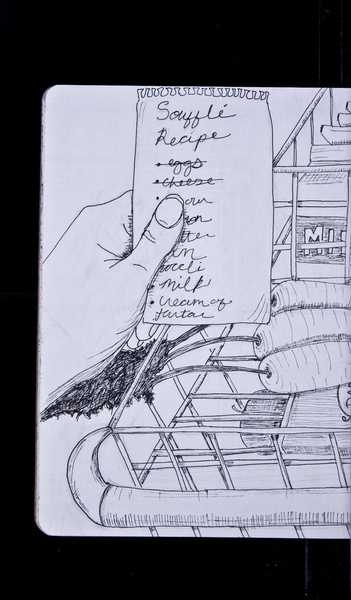 Soufflé
Recipe
• eggs
• cheese
our
on
tter
occli
• milk
• cream of
tartar
MIL